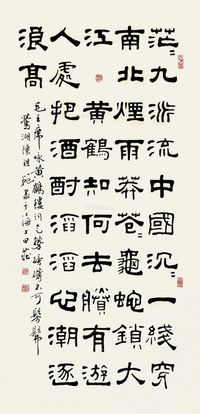 茫〻九派流中國沉〻一綫穿
南北煙雨莽蒼〻龜蛇鎖大
江黃鶴知何去賸有游
人處把酒酹滔滔心潮逐
浪高
毛主席咏黃鶴樓詞氣勢磅礴不可髣髴